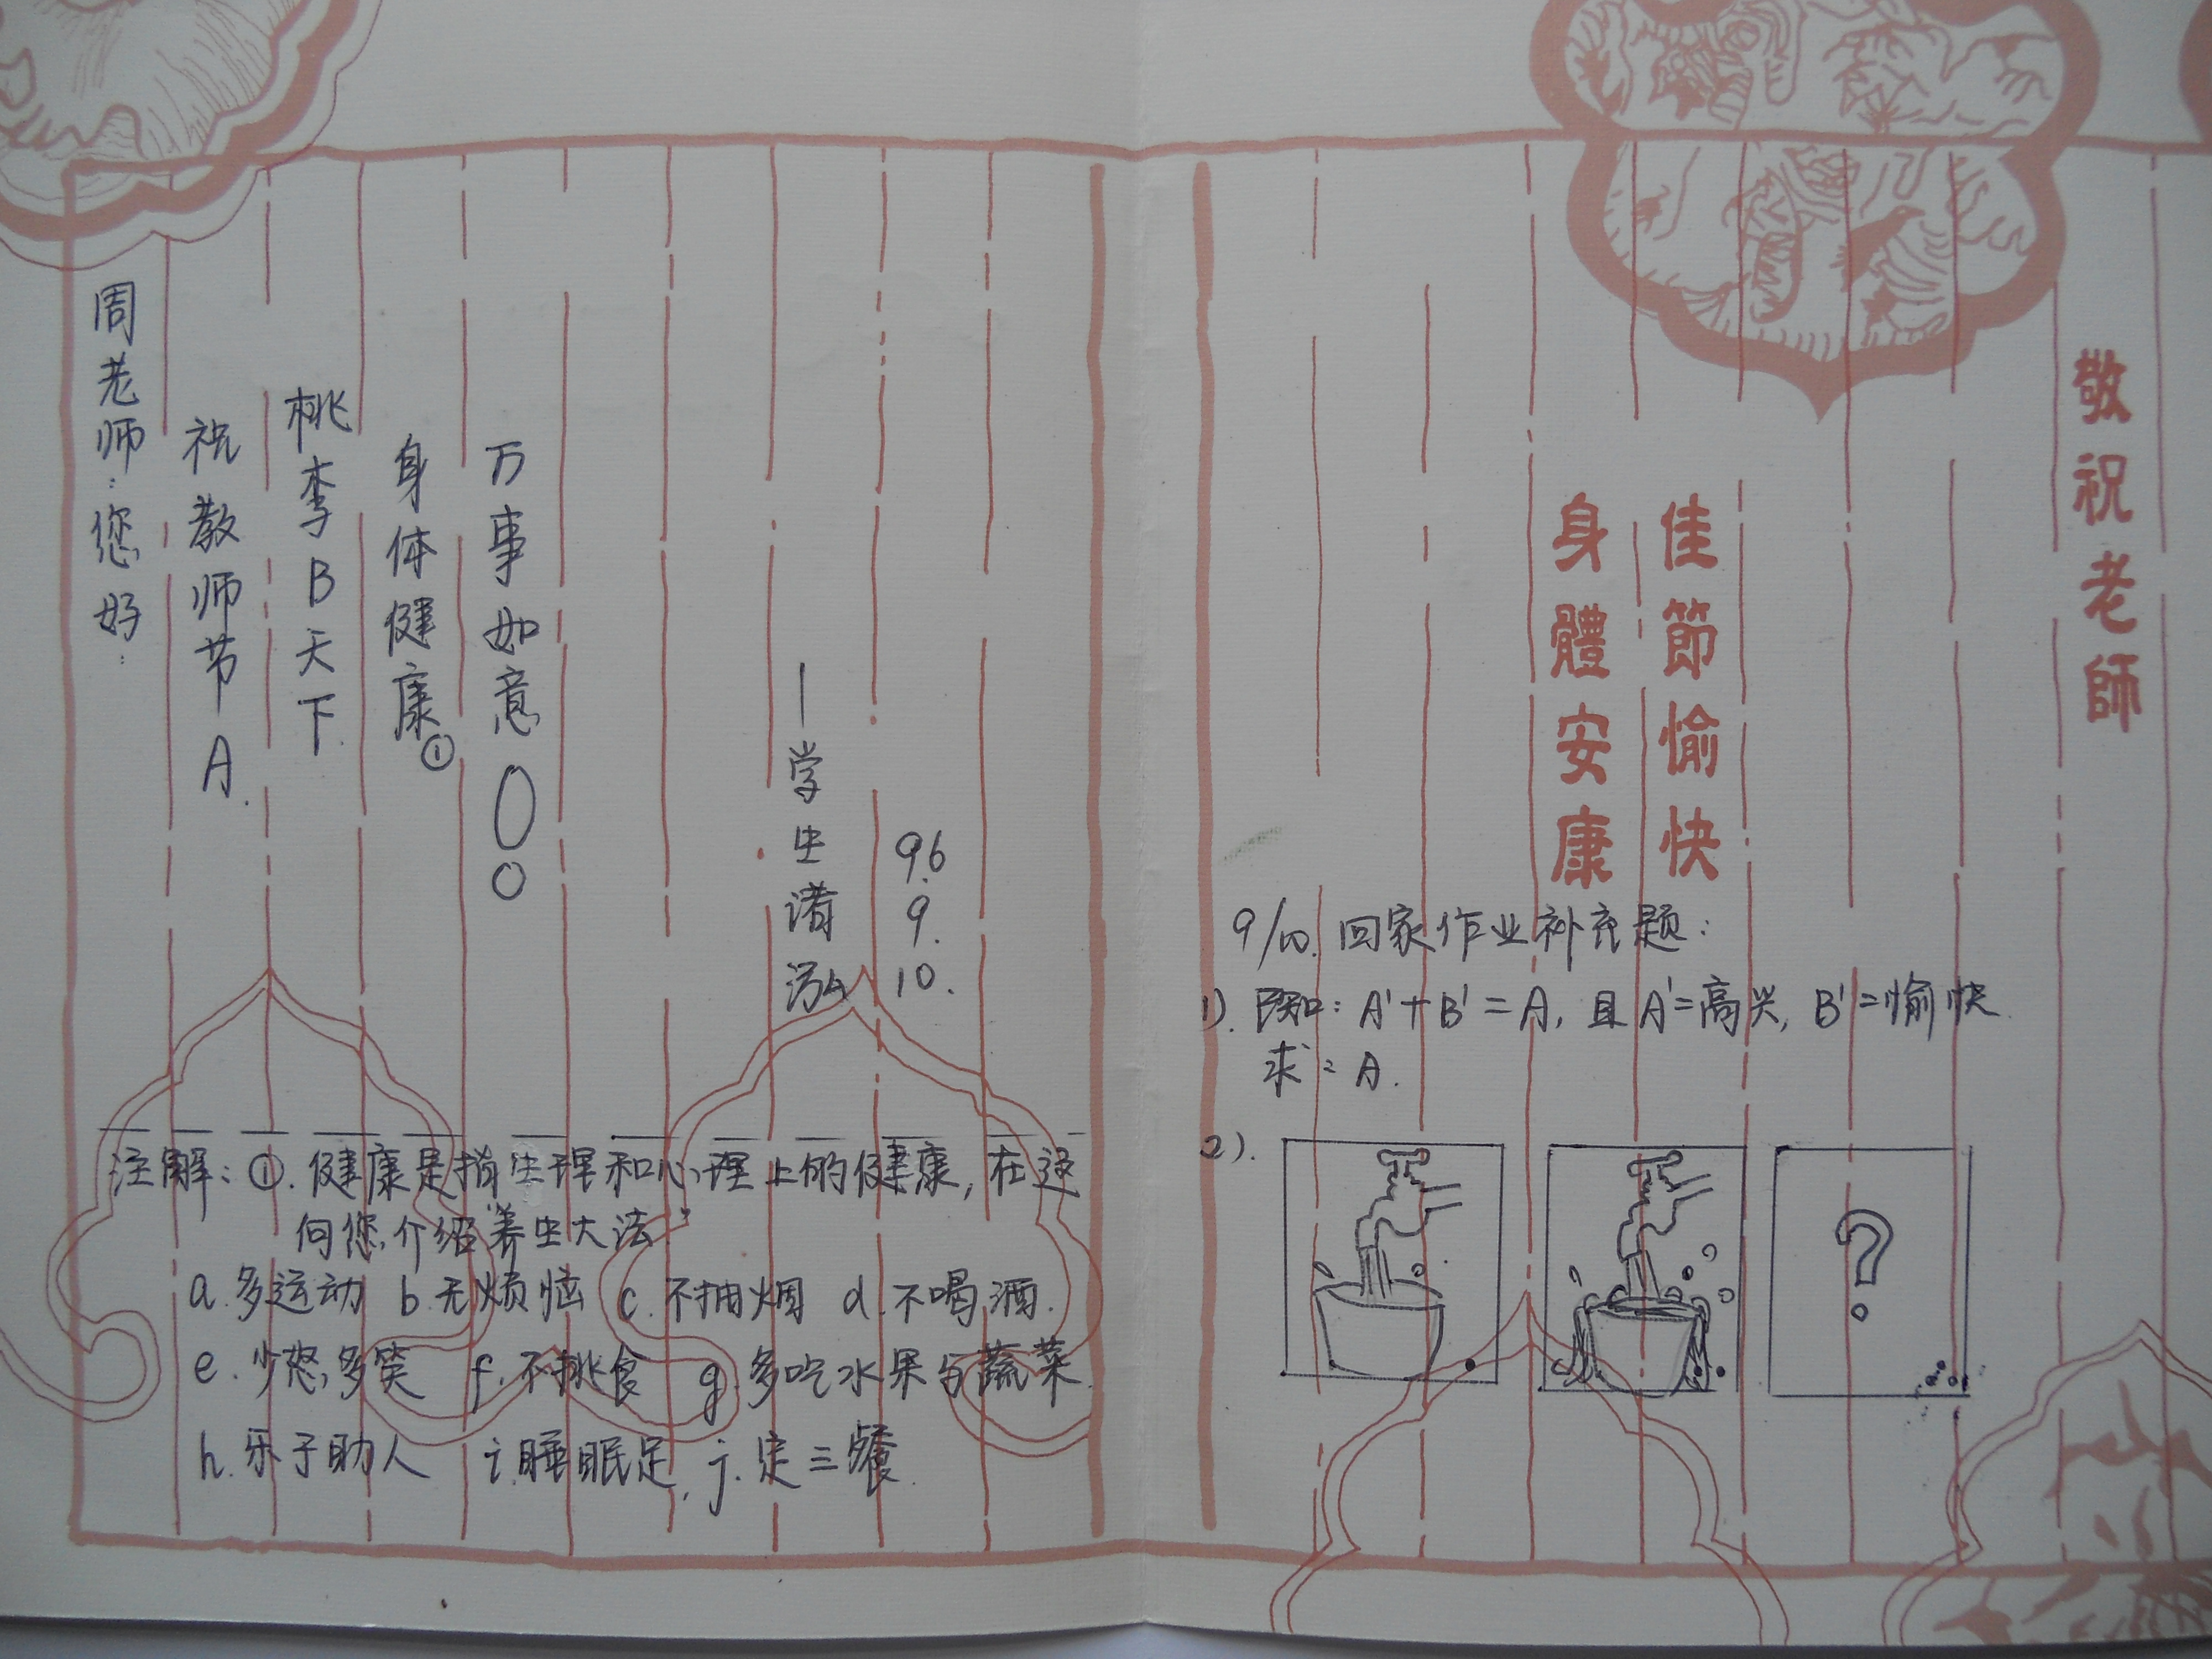 周老师:您好:
祝教师节A.
桃李B天下.
身体健康①
万事如意!
——学生潘泓
96.9.10.
注解:①.健康是指生理和心理上的健康,在这
向您介绍"养生大法"
a.多运动 b.无烦恼 c.不抽烟 d.不喝酒.
e.少怒,多笑 f.不挑食 g.多吃水果与蔬菜.
h.乐于助人 i.睡眠足, j.定三餐.
敬祝老師
佳節愉快
身體安康
9/10.回家作业补充题:
1).已知:A'+B'=A,且A'=高兴,B'=愉快.
求:A.
2).
?